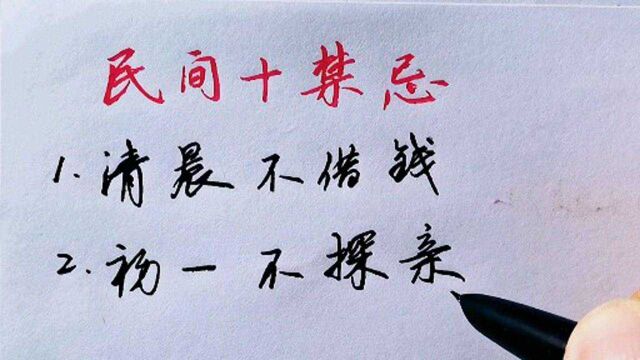 民间十禁忌
1.清晨不借钱
2.初一不探亲